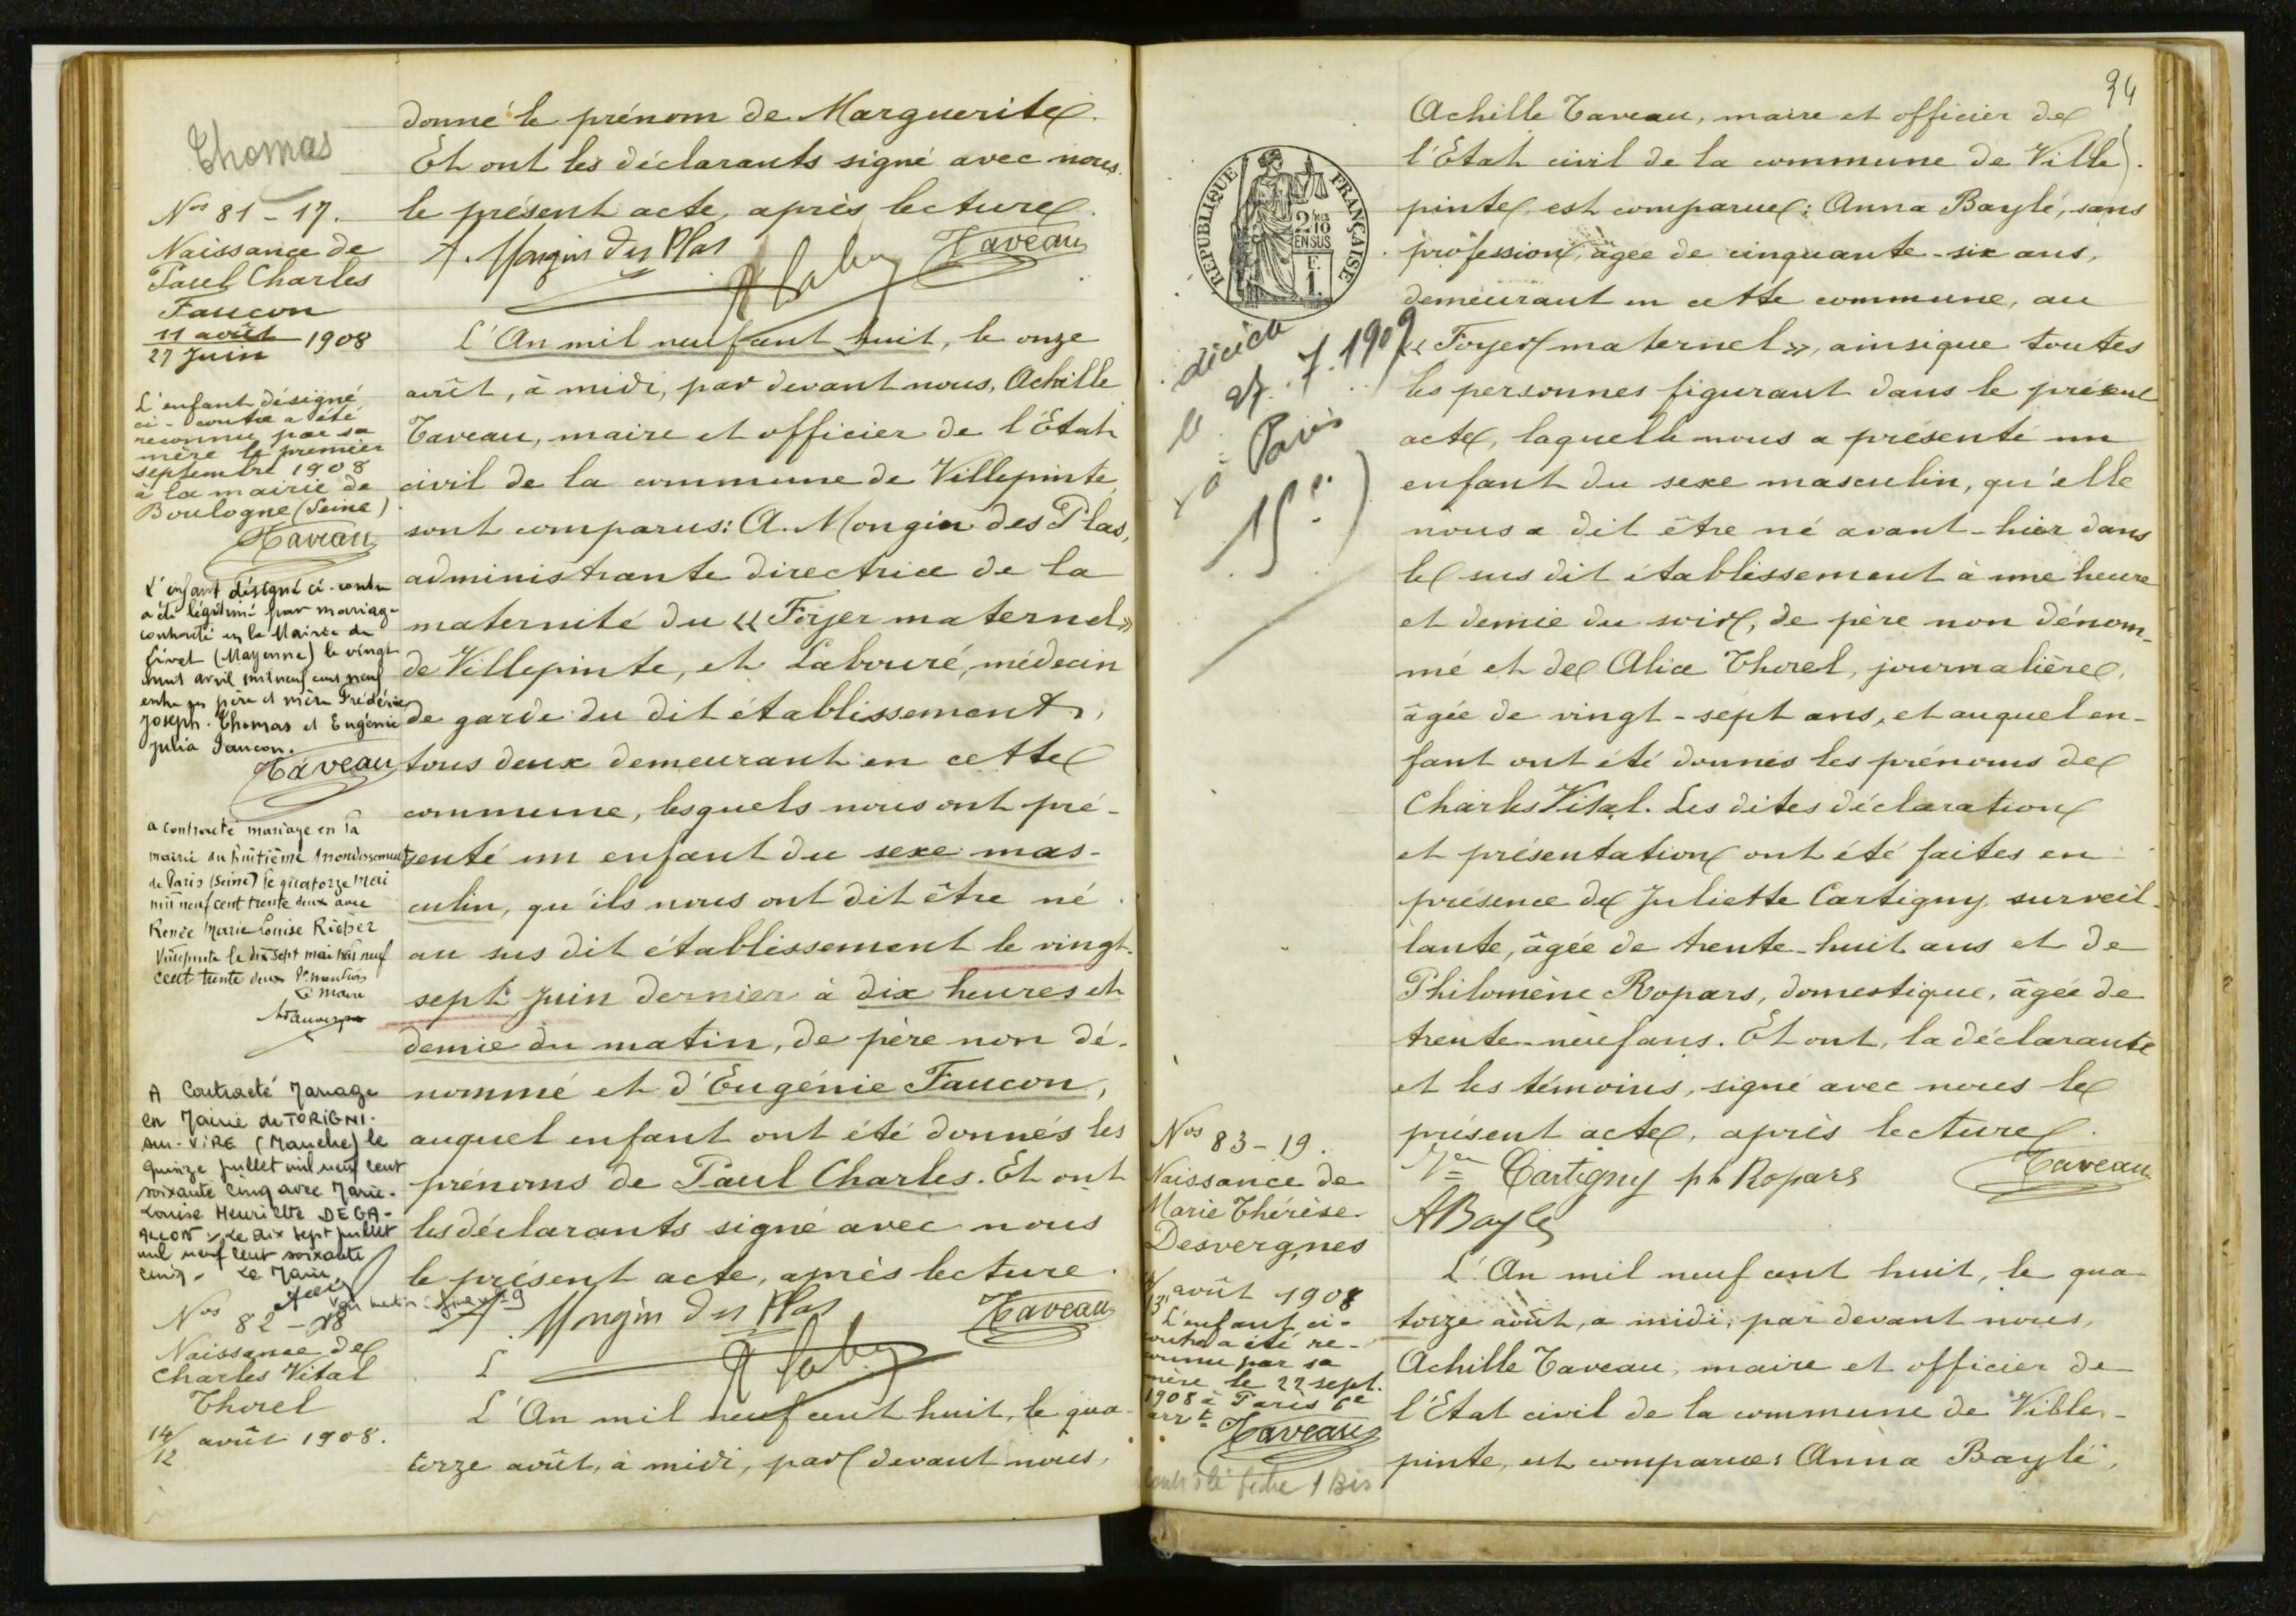 Thomas
Nos 81 - 17.
Naissance de
Paul Charles
Faucon
11 août
27 Juin 1908
L'enfant désigné
ci-contre a été
reconnu par sa
mère le premier
septembre 1908
à la mairie de
Boulogne (Seine)
Taveau
L'enfant désigné ci-contre
a été légitimé par mariage
contracté en la Mairie de
(Mayenne) le vingt
avril mil neuf cent neuf
entre ses père et mère Frédéric
Joseph Thomas et Eugénie
Julia Faucon.
Taveau
a contracté mariage en la
mairie du huitième Arrondissement
de Paris (Seine) le quatorze Mai
mil neuf cent trente deux avec
Renée Marie Louise
Villepinte le dix sept mai mil neuf
cent trente deux Pr mention
Le Maire
A Contracté Mariage
en Mairie de TORIGNI-
sur-VIRE (Manche) le
quinze juillet mil neuf cent
soixante cinq avec Marie-
Louise Henriette DEGA-
le dix sept juillet
mil neuf cent soixante
cinq. Le Maire
Nos 82 - 18
Naissance de
Charles Vital
Thorel
14/12 août 1908.
donné le prénom de Marguerite.
Et ont les déclarants signé avec nous
le présent acte, après lecture.
A. Mongin des Plas Taveau
L'An mil neuf cent huit, le onze
août, à midi, par devant nous, Achille
Taveau, maire et officier de l'Etat
civil de la commune de Villepinte
sont comparus: A. Mongin des Plas,
administrante directrice de la
maternité du « Foyer maternel »
de Villepinte, et Labouré, médecin
de garde du dit établissement,
tous deux demeurant en cette
commune, lesquels nous ont pré-
senté un enfant du sexe mas-
culin, qu'ils nous ont dit être né
au sus dit établissement le vingt-
sept Juin dernier à dix heures et
demie du matin, de père non dé-
nommé et d'Eugénie Faucon,
auquel enfant ont été donnés les
prénoms de Paul Charles. Et ont
les déclarants signé avec nous
le présent acte, après lecture.
A. Mongin des Plas Taveau
L'An mil neuf cent huit, le qua-
torze août, à midi, par devant nous,
94
RÉPUBLIQUE FRANÇAISE
2/10
EN SUS
1
F.
décédé
le 27.7.1909
à Paris
15e
Nos 83 - 19.
Naissance de
Marie Thérèse
Desvergnes
14/13 août 1908
L'enfant ci-
contre a été re-
connu par sa
mère le 22 sept.
1908 à Paris 6e
arrt
Taveau
fiche 1 Bis
Achille Taveau, maire et officier de
l'Etat civil de la commune de Ville-
pinte, est comparue: Anna Baylé, sans
profession, âgée de cinquante-six ans,
demeurant en cette commune, au
« Foyer maternel », ainsi que toutes
les personnes figurant dans le présent
acte, laquelle nous a présenté un
enfant du sexe masculin, qu'elle
nous a dit être né avant-hier dans
le sus dit établissement à une heure
et demie du soir, de père non dénom-
mé et de Alice Thorel, journalière,
âgée de vingt-sept ans, et auquel en-
fant ont été donnés les prénoms de
Charles Vital. Les dites déclaration
et présentation ont été faites en
présence de Juliette Cartigny, surveil-
lante, âgée de trente-huit ans et de
Philomène Ropars, domestique, âgée de
trente-neuf ans. Et ont, la déclarante
et les témoins, signé avec nous le
présent acte, après lecture.
Ve Cartigny ph Ropars Taveau
ABayle
L'An mil neuf cent huit, le qua-
torze août, à midi, par devant nous,
Achille Taveau, maire et officier de
l'Etat civil de la commune de Ville-
pinte, est comparue: Anna Baylé,